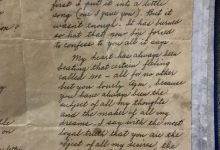 first I put it into a little
song (one I gave you). But it
wasn't enough. It has burned
so that now I'm forced
to confess to you all I say.
My heart has always been
beating that certain
called me - all for no other
but you lovely Lynn, because
you have always been the
subject of all my thoughts
and the maker of all my
dreams. I say with the most
loyal truth that you are the
object of all my desires, the